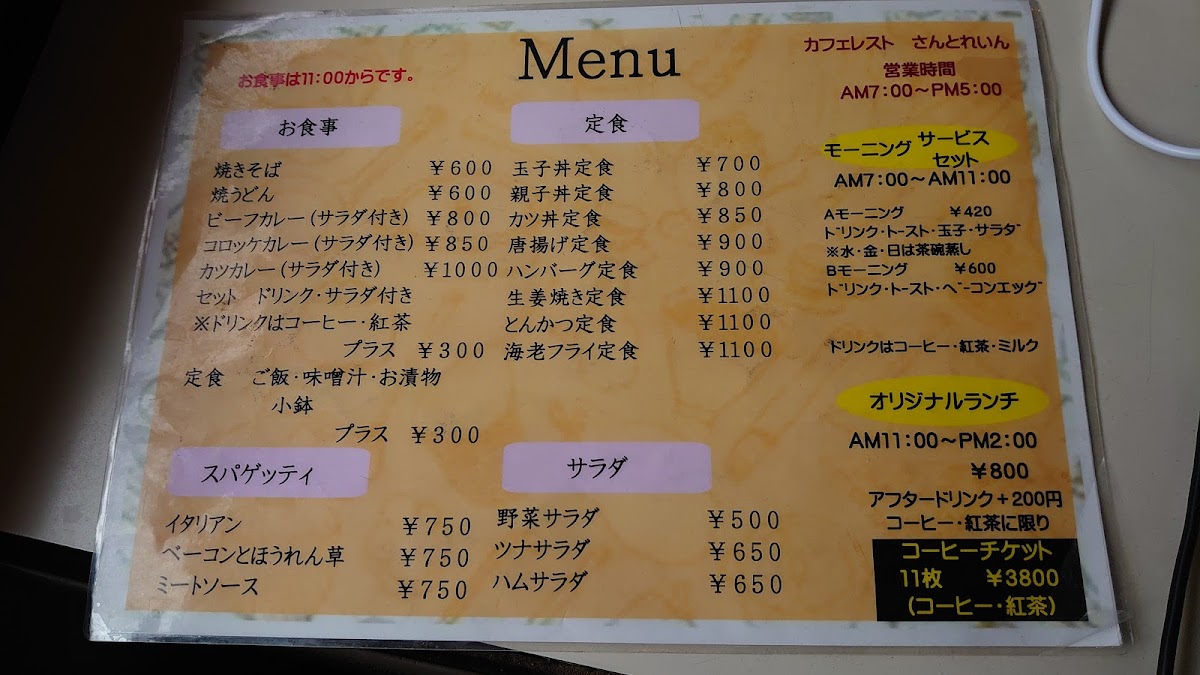 Menu
お食事は11:00からです。
お食事
焼きそば ¥600
焼うどん ¥600
ビーフカレー(サラダ付き) ¥800
コロッケカレー(サラダ付き) ¥850
カツカレー(サラダ付き) ¥1000
セット ドリンク・サラダ付き
※ドリンクはコーヒー・紅茶
プラス ¥300
定食 ご飯・味噌汁・お漬物
小鉢
プラス ¥300
スパゲッティ
イタリアン ¥750
ベーコンとほうれん草 ¥750
ミートソース ¥750
定食
玉子丼定食 ¥700
親子丼定食 ¥800
カツ丼定食 ¥850
唐揚げ定食 ¥900
ハンバーグ定食 ¥900
生姜焼き定食 ¥1100
とんかつ定食 ¥1100
海老フライ定食 ¥1100
サラダ
野菜サラダ ¥500
ツナサラダ ¥650
ハムサラダ ¥650
カフェレスト さんとれいん
営業時間
AM7:00～PM5:00
モーニング サービス
セット
AM7:00～AM11:00
Aモーニング ¥420
ドリンク・トースト・玉子・サラダ
※水・金・日は茶碗蒸し
Bモーニング ¥600
ドリンク・トースト・ベーコンエッグ
ドリンクはコーヒー・紅茶・ミルク
オリジナルランチ
AM11:00～PM2:00
¥800
アフタードリンク+200円
コーヒー・紅茶に限り
コーヒーチケット
11枚 ¥3800
(コーヒー・紅茶)